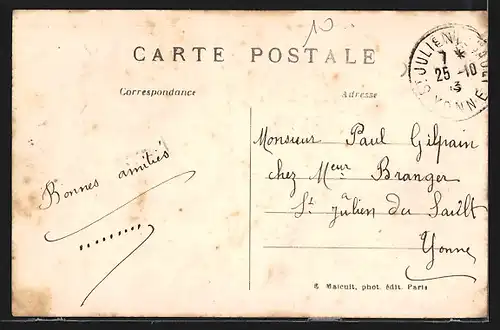 10
CARTE POSTALE
Correspondance
Adresse
ST JULIEN DU SAULT
7 *
25 -10
13
YONNE
Bonnes amitiés
Monsieur Paul Gilpain
chez Meur Branger
à
St Julien du Sault
Yonne
phot. édit. Paris